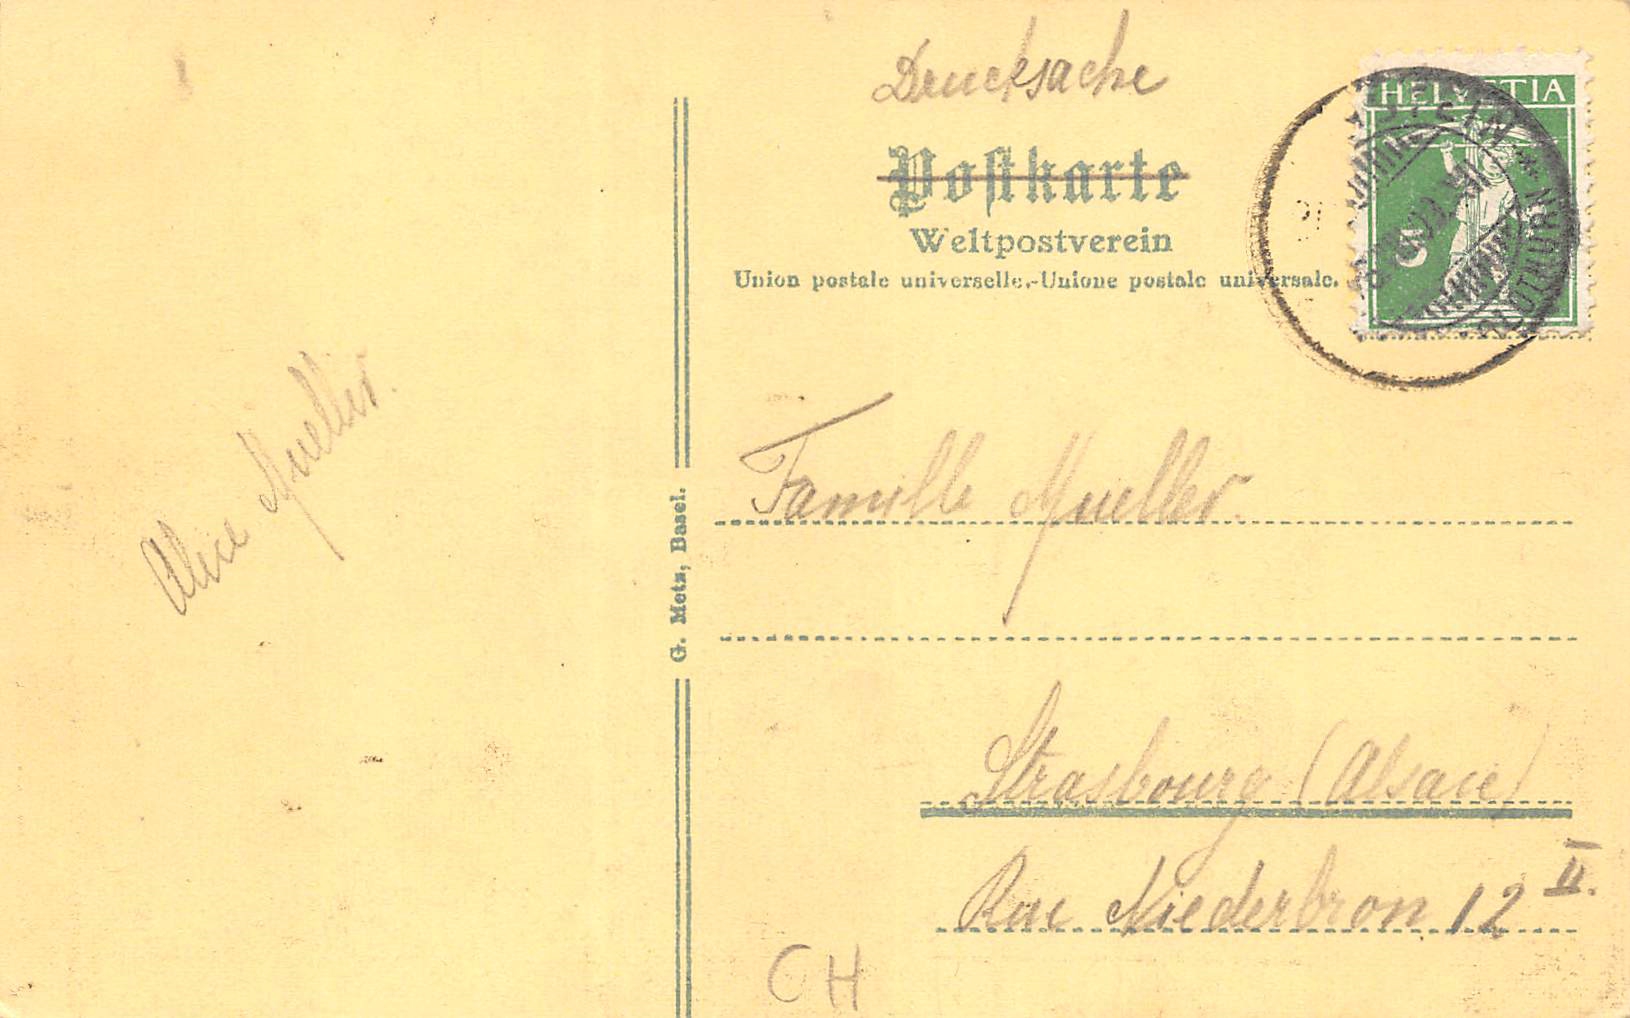 Drucksache
Postkarte
Weltpostverein
Union postale universelle.-Unione postale universale.
HELVETIA
5
Alice Mueller.
G. Metz, Basel.
Famille Mueller.
Strasbourg (Alsace)
Rue Niederbron 12 II.
CH